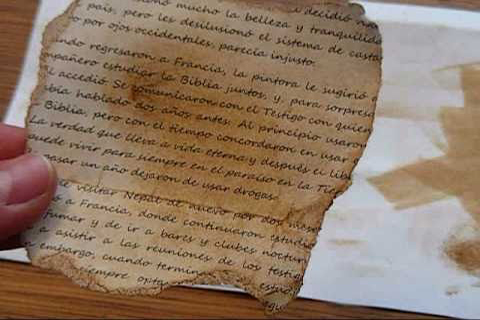 mucho la belleza y tranquilida
país, pero les desilusionó el sistema de casta
por ojos occidentales, parecía injusto.
ando regresaron a Francia, la pintora le sugirió
mpañero estudiar la Biblia juntos, y, para sorpres
l accedió. Se comunicaron con el Testigo con quien
bía hablado dos años antes. Al principio usaron
Biblia, pero con el tiempo concordaron en usar
La verdad que lleva a vida eterna y después el lib
puede vivir para siempre en el paraíso en la Tie
pasar un año dejaron de usar drogas.
visitar Nepal de nuevo por dos mese
a Francia, donde continuaron estudia
fumar y de ir a bares y clubes noctur
a asistir a las reuniones de los testig
embargo, cuando termin estud
siempre opta